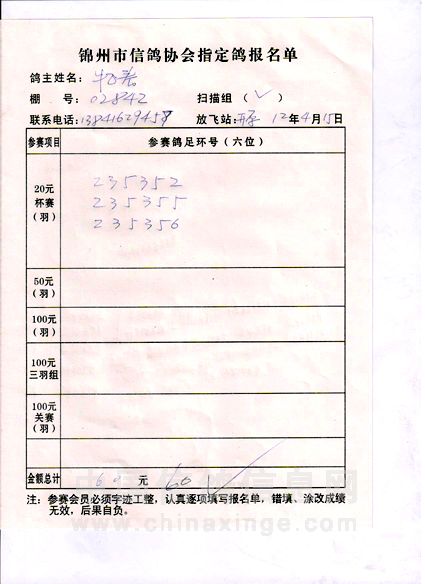 锦州市信鸽协会指定鸽报名单
鸽主姓名:
棚 号: 02842 扫描组 ( ✓ )
联系电话: 13841629458 放飞站: 12年4月15日
参赛项目 参赛鸽足环号 (六位)
20元
杯赛
(羽)
235352
235355
235356
50元
(羽)
100元
(羽)
100元
三羽组
100元
关赛
(羽)
金额总计 60 元 60
注: 参赛会员必须字迹工整, 认真逐项填写报名单, 错填、涂改成绩
无效, 后果自负。
www.chinaxinge.com